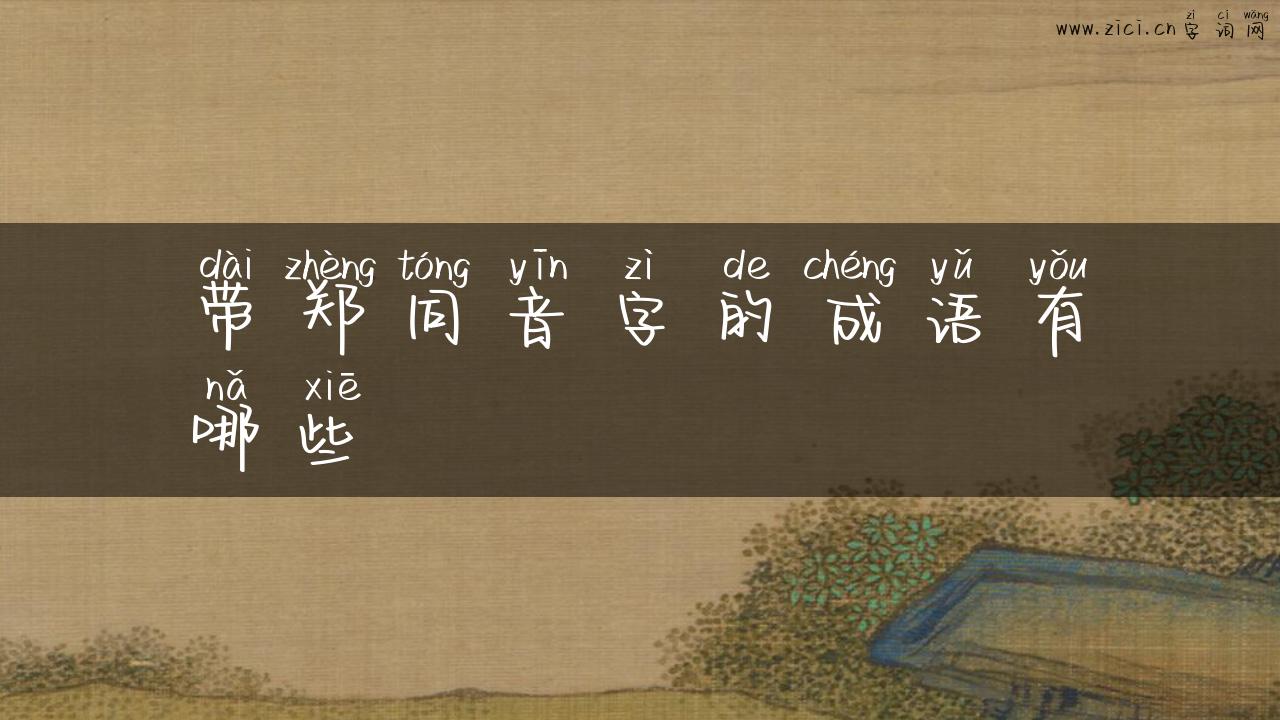 zì cí wǎng
www.zici.cn 字词网
dài zhèng tóng yīn zì de chéng yǔ yǒu
带郑同音字的成语有
nǎ xiē
哪些